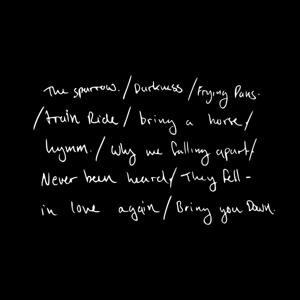 The sparrow. / Darkness / Frying Pans.
/ train Ride / bring a horse /
hymm. / Why we falling apart /
Never been heard / They fell -
in love again / Bring you Down.